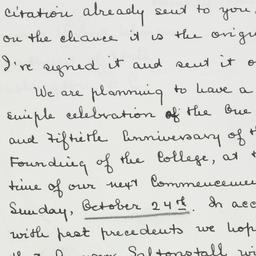 citation already sent to you.
on the chance it is the orig
I've signed it and sent it o
We are planning to have a
simple celebration of the One
and Fiftieth Anniversary of t
Founding of the College, at t
time of our next Commenceme
Sunday, October 24th. In acc
with past precedents we hop
Saltonstall wi